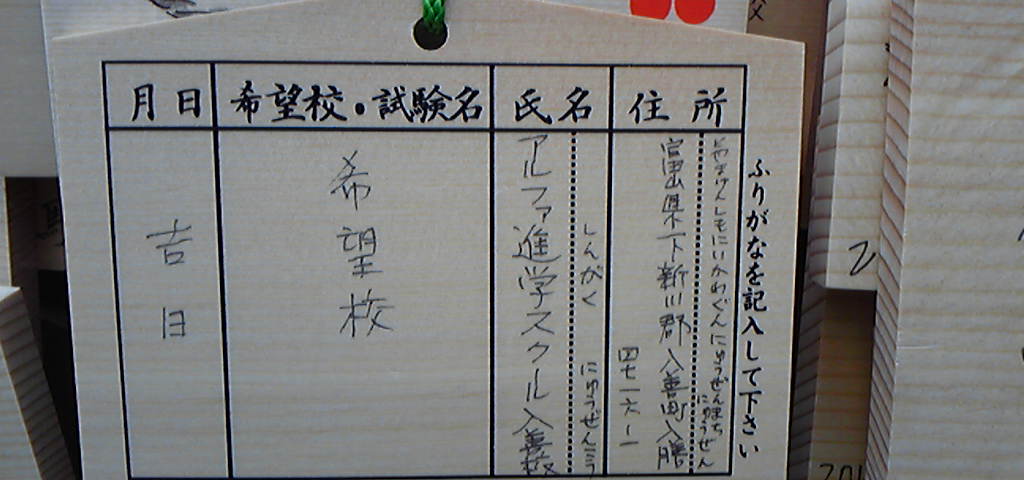 ふりがなを記入して下さい
住所
とやまけんしもにいかわぐんにゅうぜんまち
にゅうぜん
富山県下新川郡入善町入膳
四七一六ー一
氏名
しんがく にゅうぜんこう
アルファ進学スクール入善校
希望校・試験名
希望校
月日
吉日